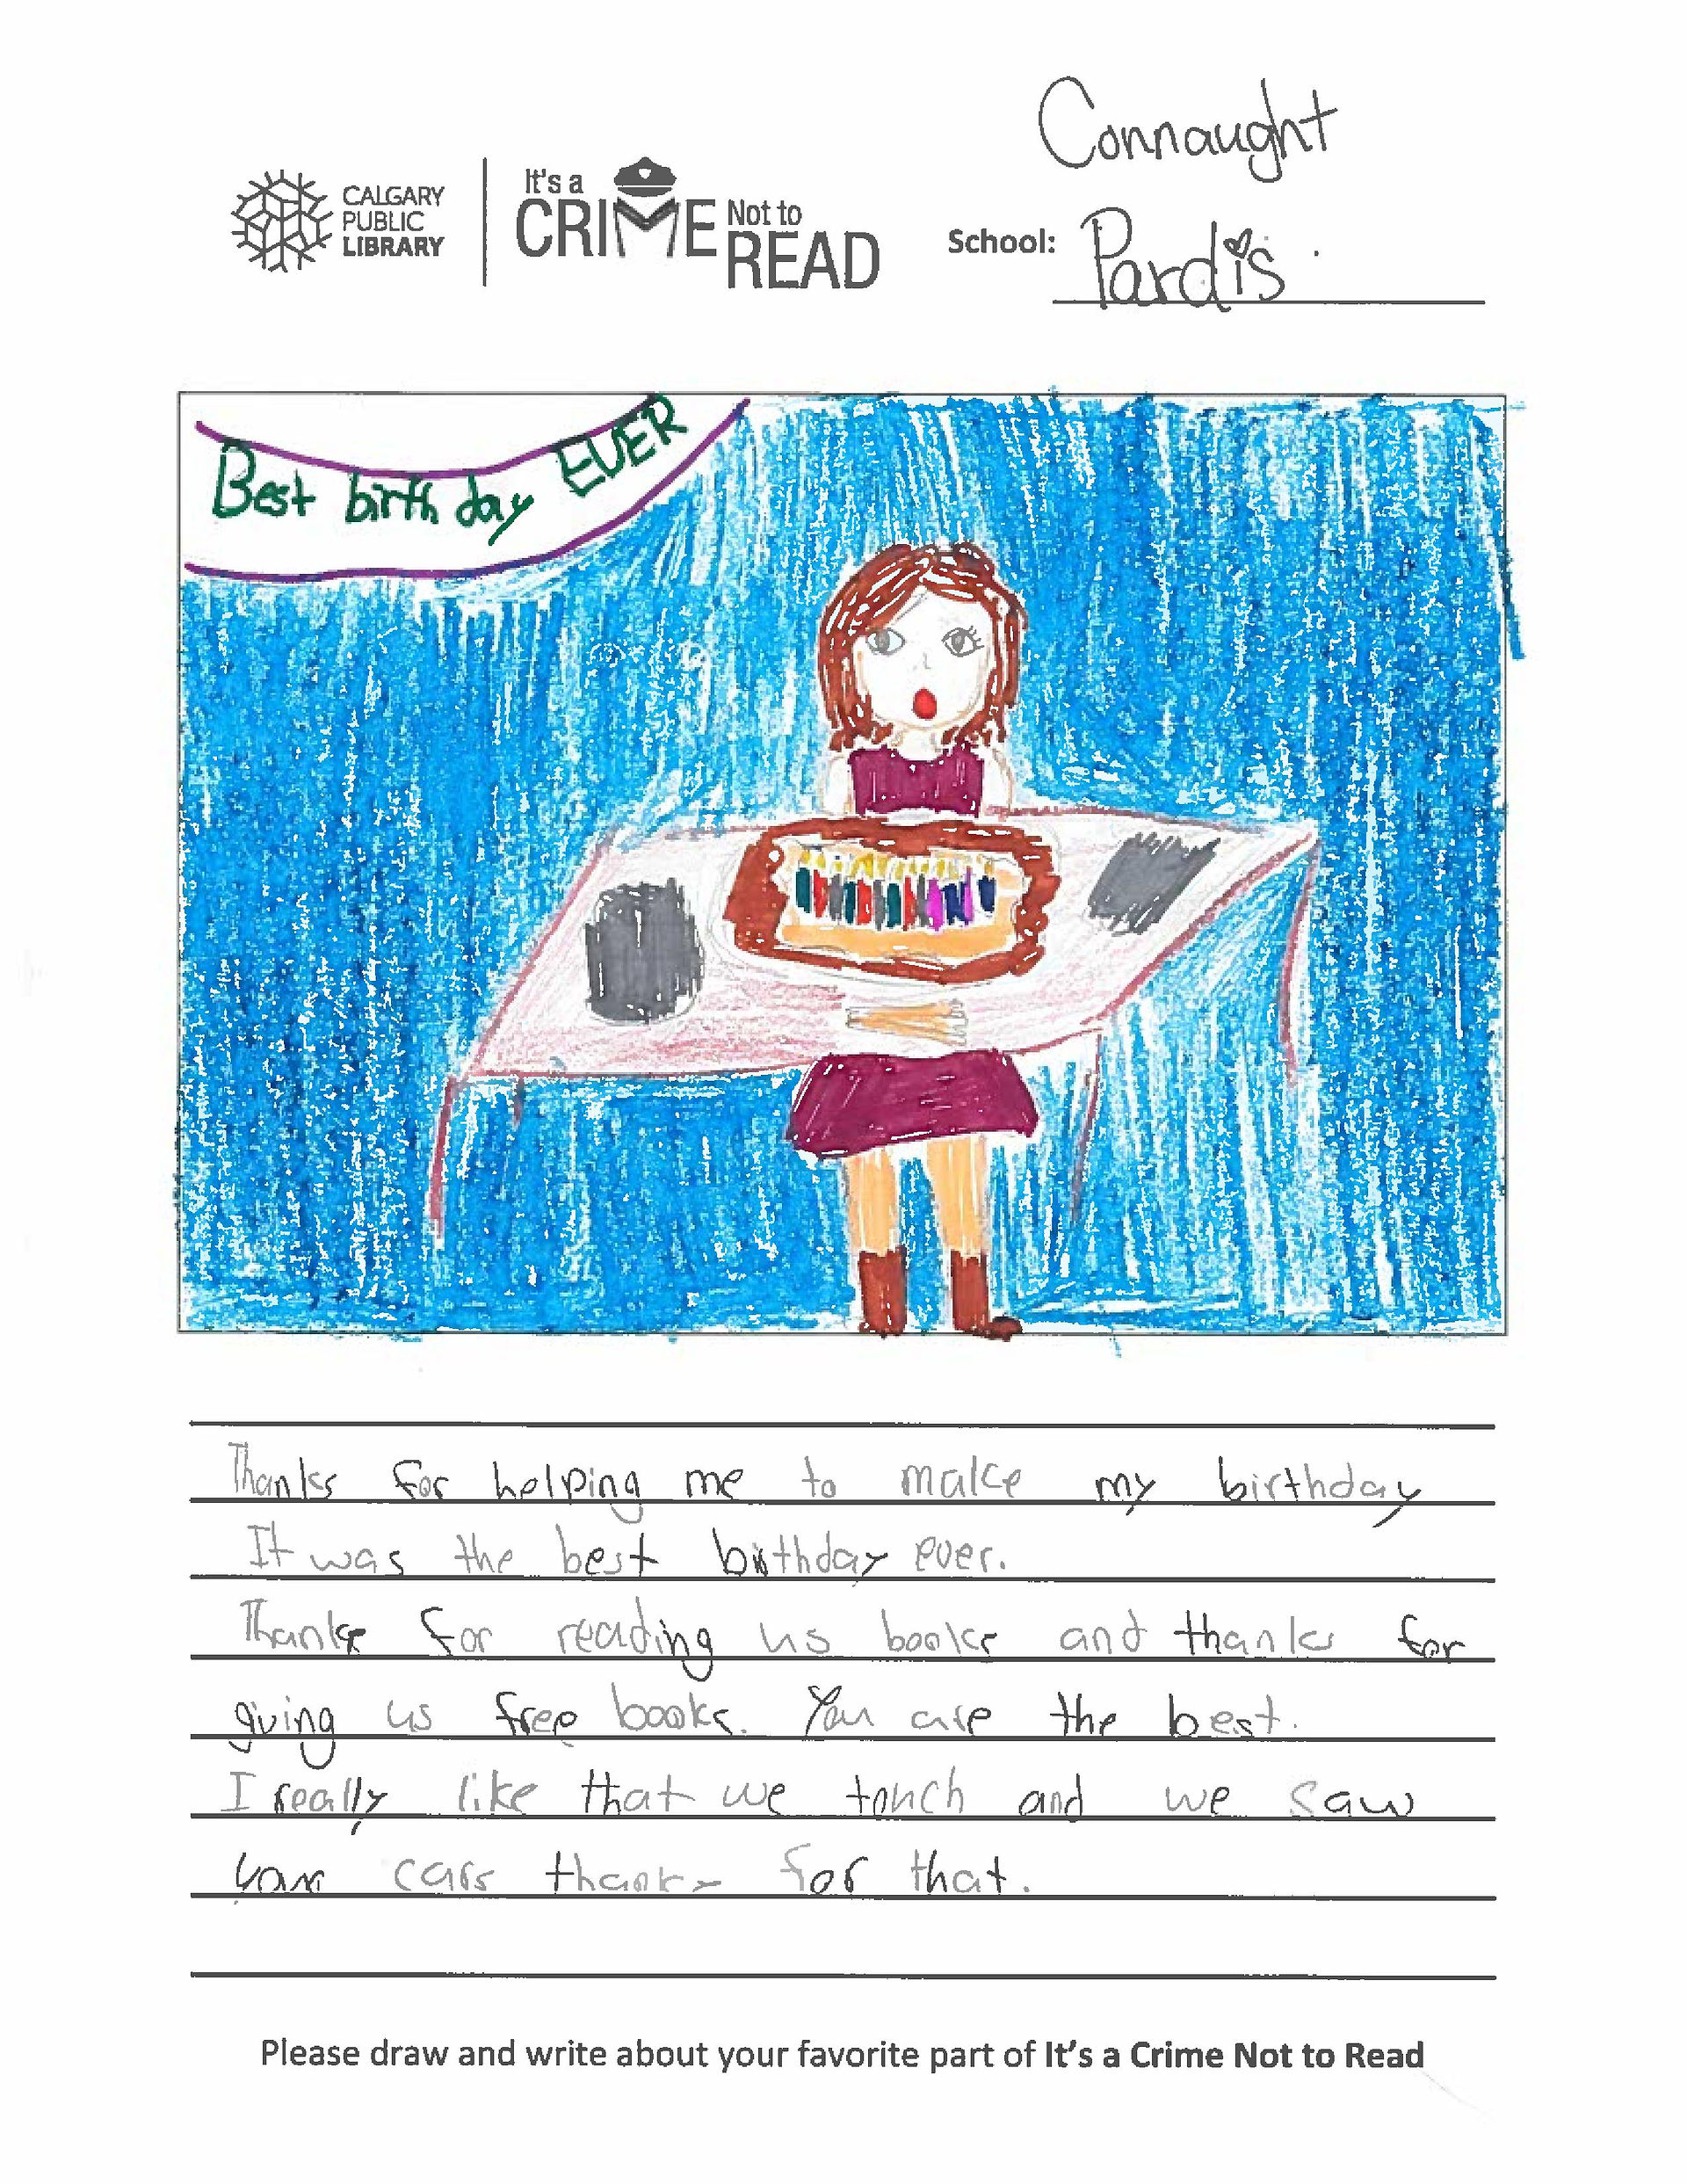 Connaught
CALGARY
PUBLIC
LIBRARY
It's a
CRIME
Not to
READ
School: Pardis.
Best birthday EVER
Thanks for helping me to make my birthday
It was the best birthday ever.
Thanks for reading us books and thanks for
giving us free books. You are the best.
I really like that we touch and we saw
your cars thanks for that.
Please draw and write about your favorite part of It's a Crime Not to Read